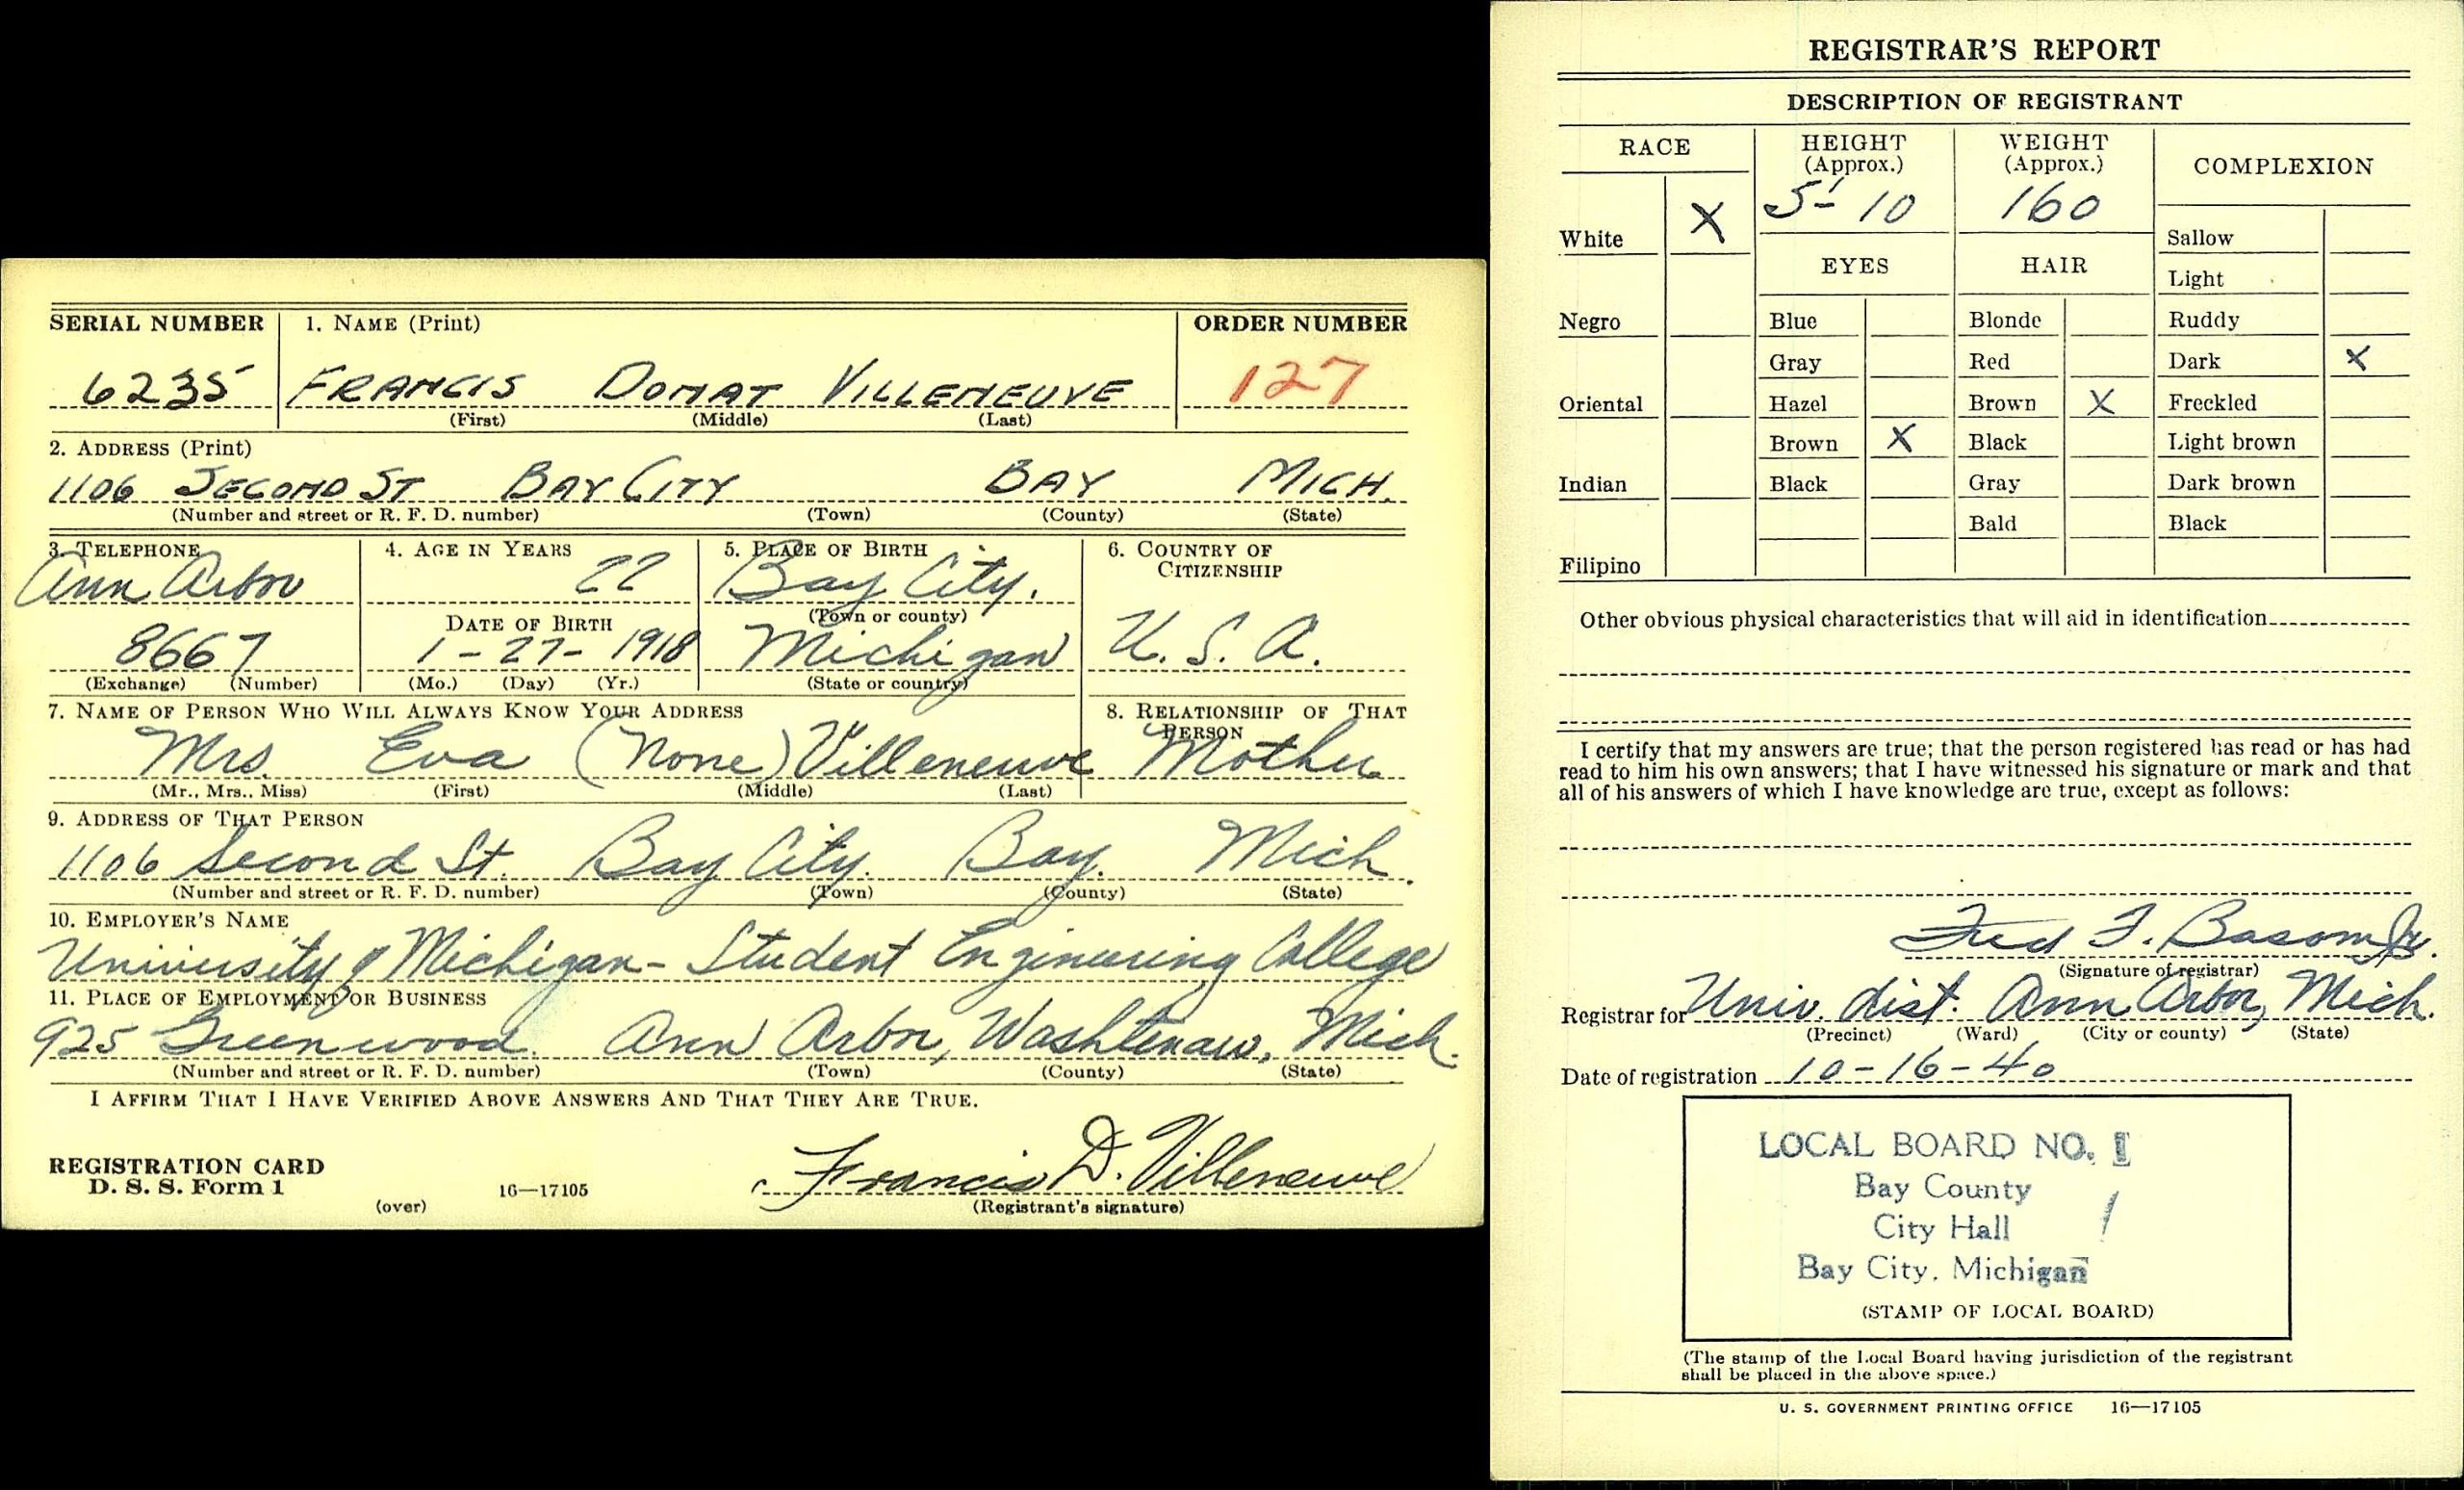 SERIAL NUMBER 1. NAME (Print) ORDER NUMBER
6235 FRANCIS DONAT VILLENEUVE 127
(First) (Middle) (Last)
2. ADDRESS (Print)
1106 SECOND ST BAY CITY BAY MICH.
(Number and street or R. F. D. number) (Town) (County) (State)
3. TELEPHONE 4. AGE IN YEARS 5. PLACE OF BIRTH 6. COUNTRY OF CITIZENSHIP
Ann Arbor 22 Bay City.
DATE OF BIRTH (Town or county)
8667 1-27-1918 Michigan U. S. A.
(Exchange) (Number) (Mo.) (Day) (Yr.) (State or country)
7. NAME OF PERSON WHO WILL ALWAYS KNOW YOUR ADDRESS 8. RELATIONSHIP OF THAT PERSON
Mrs. Eva (None) Villeneuve Mother
(Mr., Mrs., Miss) (First) (Middle) (Last)
9. ADDRESS OF THAT PERSON
1106 Second St. Bay City. Bay. Mich.
(Number and street or R. F. D. number) (Town) (County) (State)
10. EMPLOYER'S NAME
University of Michigan - Student Engineering College
11. PLACE OF EMPLOYMENT OR BUSINESS
925 Greenwood. Ann Arbor, Washtenaw, Mich.
(Number and street or R. F. D. number) (Town) (County) (State)
I AFFIRM THAT I HAVE VERIFIED ABOVE ANSWERS AND THAT THEY ARE TRUE.
REGISTRATION CARD
D. S. S. Form 1 16—17105 Francis D. Villeneuve
(over) (Registrant's signature)
REGISTRAR'S REPORT
DESCRIPTION OF REGISTRANT
RACE HEIGHT (Approx.) WEIGHT (Approx.) COMPLEXION
5'-10 160
White X Sallow
EYES HAIR
Light
Negro Blue Blonde Ruddy
Gray Red Dark X
Oriental Hazel Brown X Freckled
Brown X Black Light brown
Indian Black Gray Dark brown
Bald Black
Filipino
Other obvious physical characteristics that will aid in identification
I certify that my answers are true; that the person registered has read or has had
read to him his own answers; that I have witnessed his signature or mark and that
all of his answers of which I have knowledge are true, except as follows:
Fred F. Basom Jr.
(Signature of registrar)
Registrar for Univ. dist. Ann Arbor, Mich.
(Precinct) (Ward) (City or county) (State)
Date of registration 10-16-40
LOCAL BOARD NO. 1
Bay County
City Hall 1
Bay City, Michigan
(STAMP OF LOCAL BOARD)
(The stamp of the Local Board having jurisdiction of the registrant
shall be placed in the above space.)
U. S. GOVERNMENT PRINTING OFFICE 16—17105